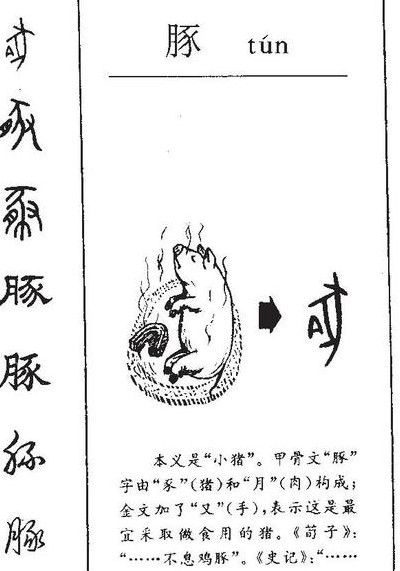 豚 tún
本义是“小猪”。甲骨文“豚”
字由“豕”(猪)和“月”(肉)构成;
金文加了“又”(手),表示这是最
宜采取做食用的猪。《荀子》:
“……不息鸡豚”。《史记》:“……
豚
豚
豚